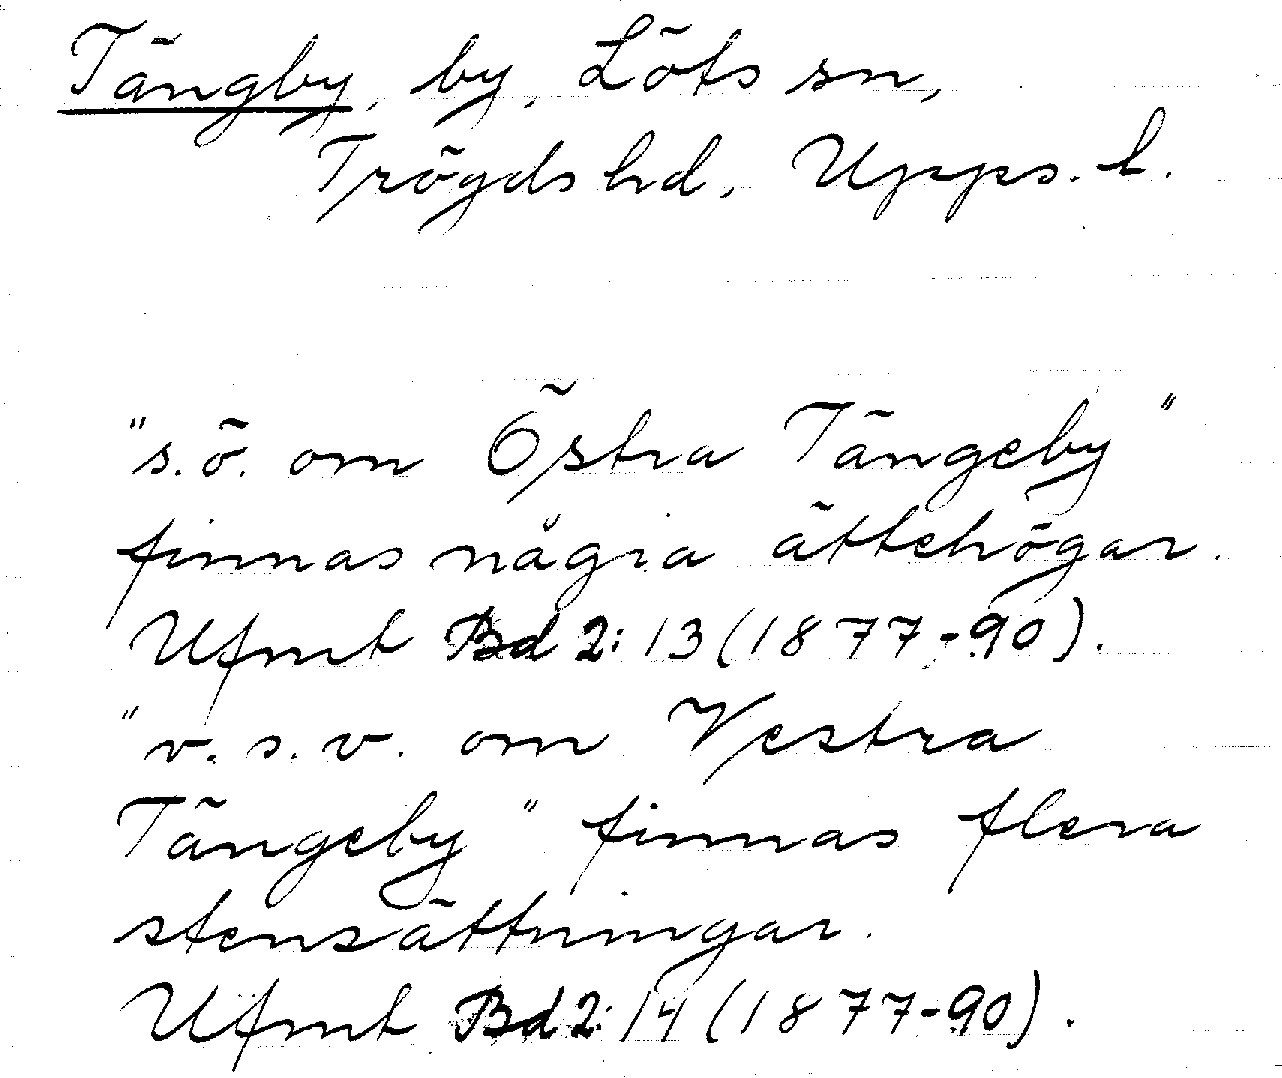 Tängby, by, Löts sn,
Trögds hd, Upps. l.
"s.ö. om Östra Tängeby"
finnas några ättehögar.
Ufmt Bd 2: 13 (1877-90).
"v.s.v. om Vestra
Tängeby" finnas flera
stensättningar.
Ufmt Bd 2: 14 (1877-90).